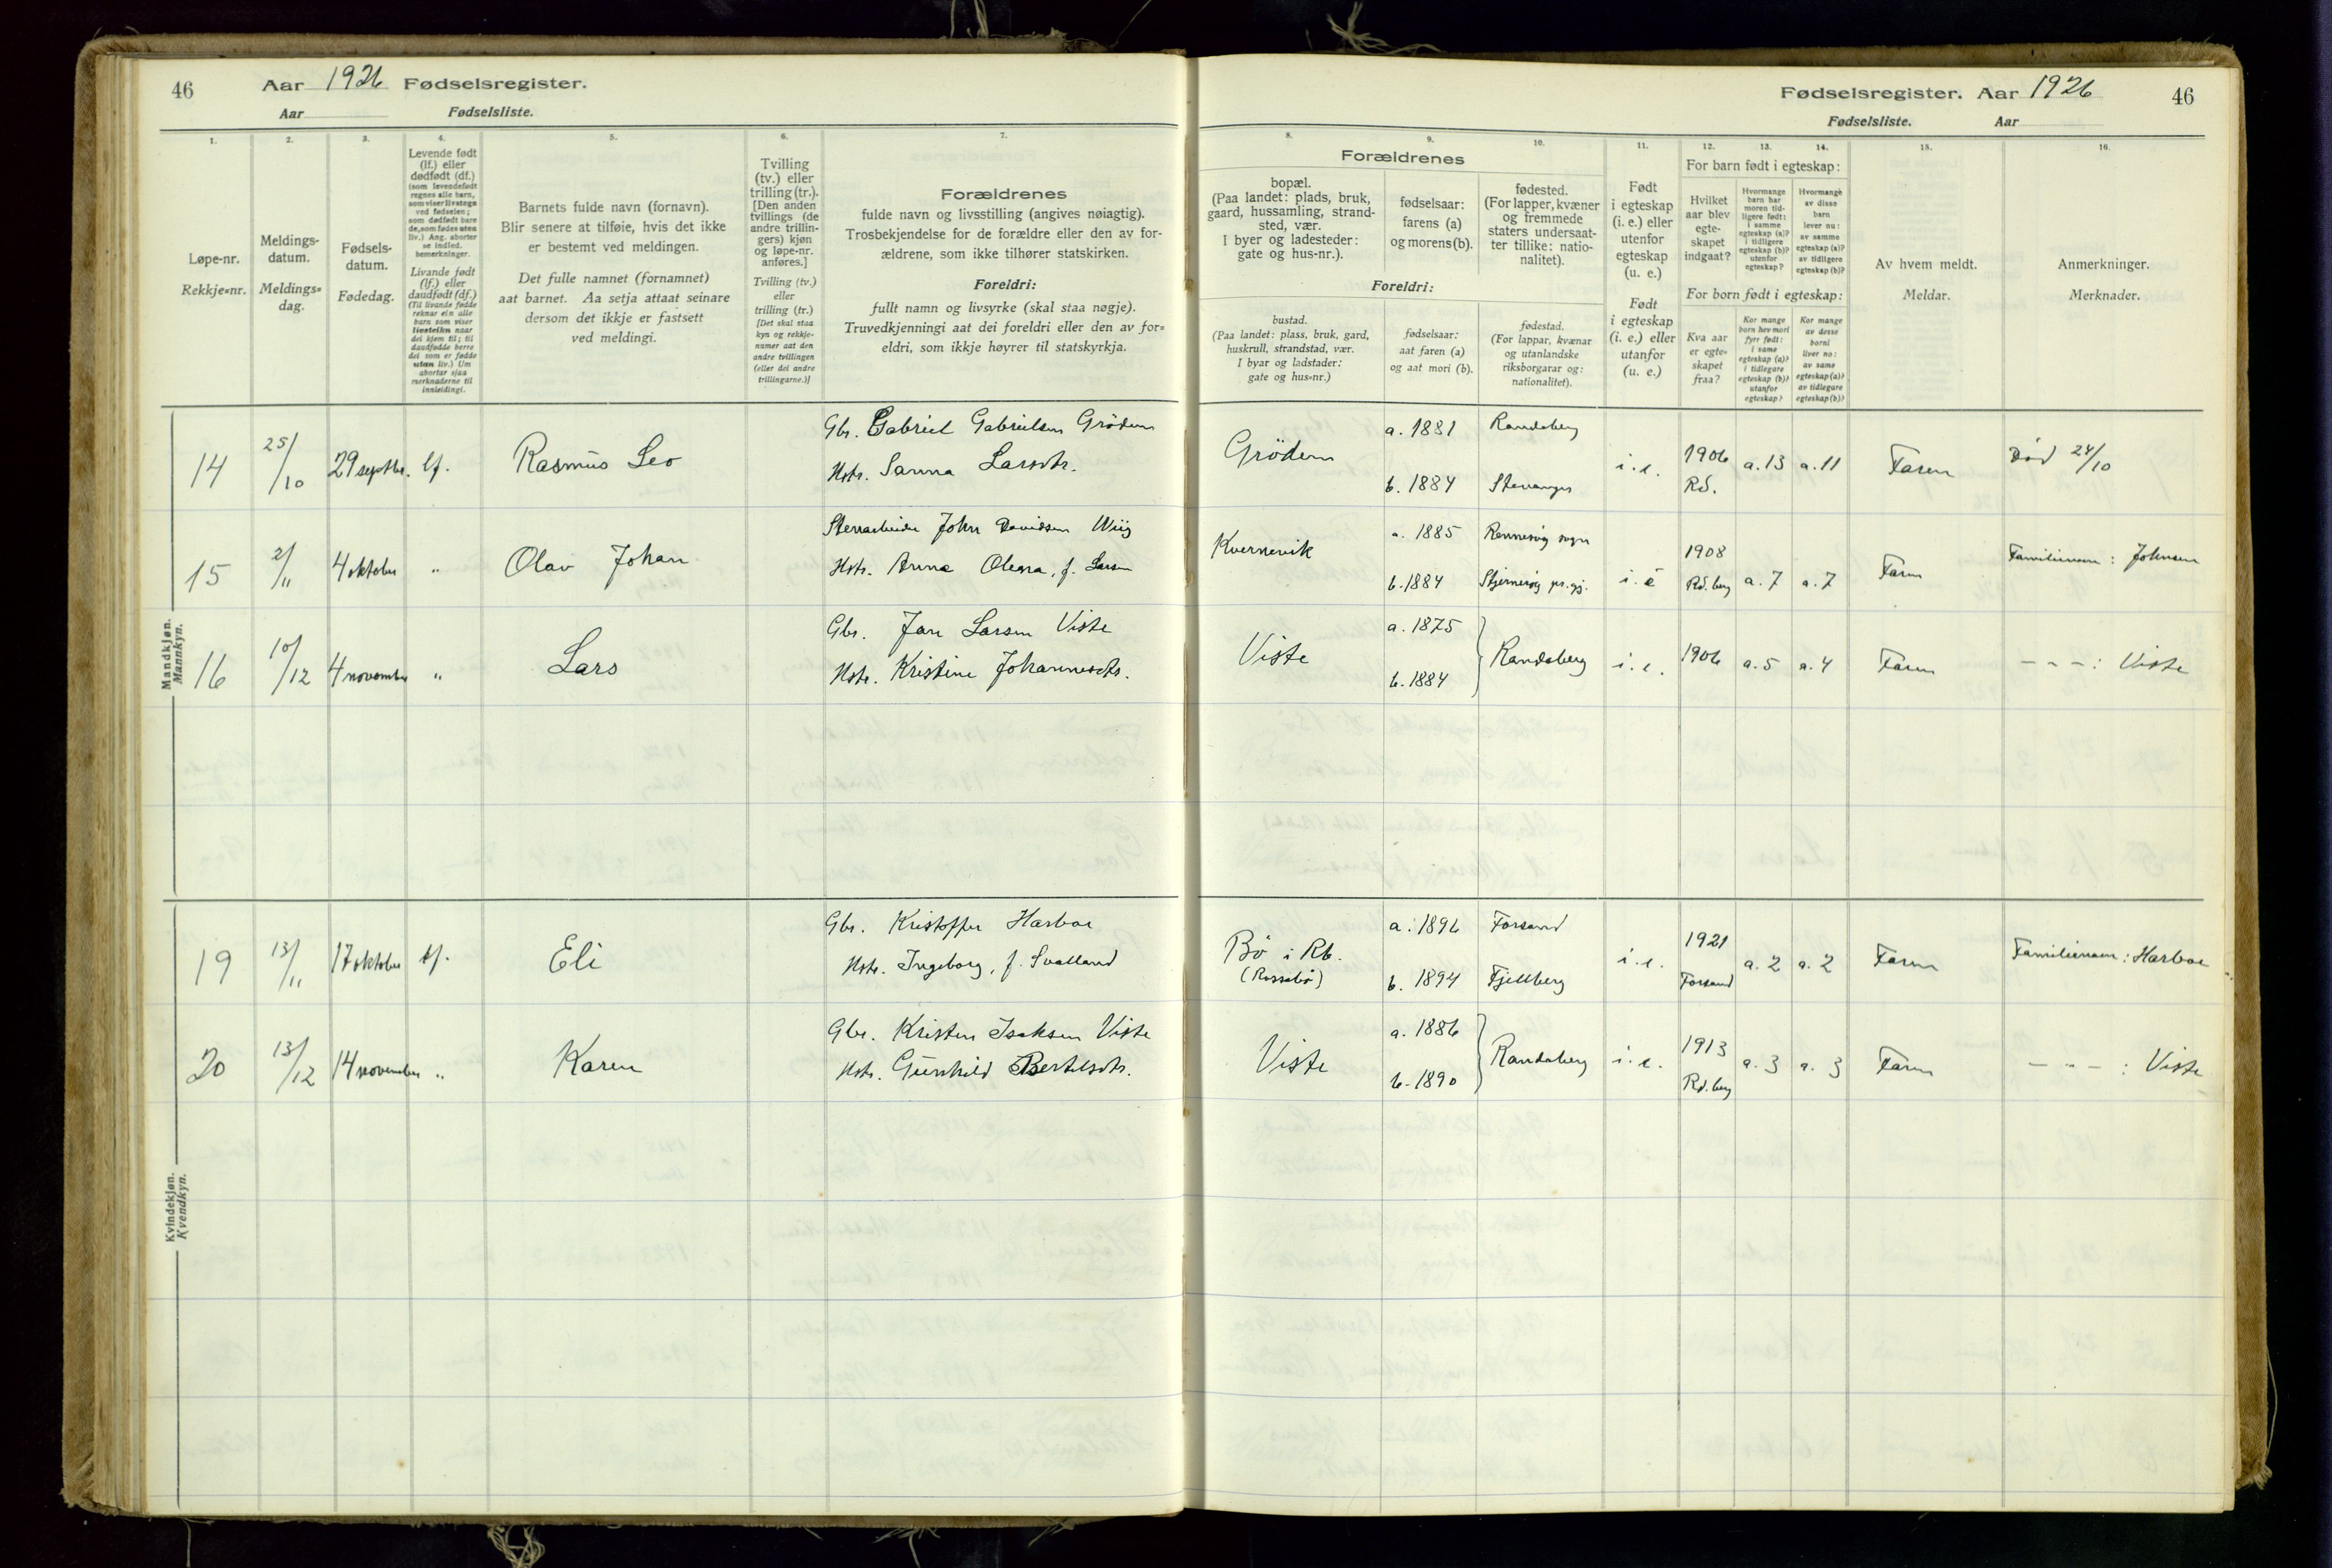 46 Aar 1926 Fødselsregister.
Aar Fødselsliste.
Fødselsregister. Aar 1926 46
Fødselsliste. Aar
1.
Løpe-nr.
Rekkje=nr.
2.
Meldings-
datum.
Meldings=
dag.
3.
Fødsels-
datum.
Fødedag.
4.
Levende født
(lf.) eller
dødfødt (df.)
(som levendefødt
regnes alle barn,
som viser livstegn
ved fødselen;
som dødfødt bare
de, som fødes uten
liv.) Ang. aborter
se indled.
bemerkninger.
Livande født
(lf.) eller
daudfødt (df.)
(Til livande fødde
reknar ein alle
barn som viser
livsteikn naar
dei kjem til; til
daudfødde berre
dei som er fødde
utan liv.) Um
abortar sjaa
merknaderne til
innleidingi.
5.
Barnets fulde navn (fornavn).
Blir senere at tilføie, hvis det ikke
er bestemt ved meldingen.
Det fulle namnet (fornamnet)
aat barnet. Aa setja attaat seinare
dersom det ikkje er fastsett
ved meldingi.
6.
Tvilling
(tv.) eller
trilling (tr.).
[Den anden
tvillings (de
andre trillin-
gers) kjøn
og løpe-nr.
anføres.]
Tvilling (tv.)
eller
trilling (tr.)
[Det skal staa
kyn og rekkje-
numer aat den
andre tvillingen
(eller dei andre
trillingarne.)]
7.
Forældrenes
fulde navn og livsstilling (angives nøiagtig).
Trosbekjendelse for de forældre eller den av for-
ældrene, som ikke tilhører statskirken.
Foreldri:
fullt namn og livsyrke (skal staa nøgje).
Truvedkjenningi aat dei foreldri eller den av for=
eldri, som ikkje høyrer til statskyrkja.
Forældrenes
8.
bopæl.
(Paa landet: plads, bruk,
gaard, hussamling, strand-
sted, vær.
I byer og ladesteder:
gate og hus-nr.).
9.
fødselsaar:
farens (a)
og morens (b).
10.
fødested.
(For lapper, kvæner
og fremmede
staters undersaat-
ter tillike: natio-
nalitet).
Foreldri:
bustad.
(Paa landet: plass, bruk, gard,
huskrull, strandstad, vær.
I byar og ladstader:
gate og hus=nr.)
fødselsaar:
aat faren (a)
og aat mori (b).
fødestad.
(For lappar, kvænar
og utanlandske
riksborgarar og:
nationalitet).
11.
Født
i egteskap
(i. e.) eller
utenfor
egteskap
(u. e.)
Født
i egteskap
(i. e.) eller
utanfor
egteskap
(u. e.)
12. 13. 14.
For barn født i egteskap:
Hvilket
aar blev
egte-
skapet
indgaat?
Hvormange
barn har
moren tid-
ligere født:
i samme
egteskap (a)?
i tidligere
egteskap (b)?
utenfor
egteskap?
Hvormange
av disse
barn
lever nu:
av samme
egteskap (a)?
av tidligere
egteskap (b)?
For born født i egteskap:
Kva aar
er egte-
skapet
fraa?
Kor mange
born hev mori
fyrr født:
i same
egteskap (a)?
i tidlegare
egteskap (b)?
utanfor
egteskap?
Kor mange
av desse
borni
liver no:
av same
egteskap (a)?
av tidlegare
egteskap (b)?
15.
Av hvem meldt.
Meldar.
16.
Anmerkninger.
Merknader.
Mandkjøn.
Mannkyn.
14 25/10 29 septbr. lf. Rasmus Leo
Gbr. Gabriel Gabrielsen Grödem
Hstr. Sanna Larsdtr.
Grödem a. 1881 Randaberg
b. 1884 Stavanger
i. e. 1906 Rd. a. 13 a. 11 Faren Död 24/10
15 2/11 4 oktober „ Olav Johan
Stenarbeider John Davidsen Wiig
Hstr. Anna Olena, f. Larsen
Kvernevik a. 1885 Rennesöy sogn
b. 1884 Stjerneröy pr.gj.
i. e 1908 Rd.berg a. 7 a. 7 Faren Familienavn: Johnsen
16 10/12 4 november „ Lars
Gbr. Jan Larsen Viste
Hstr. Kristine Johannesdtr.
Viste a. 1875
b. 1884
Randaberg i. e. 1906 a. 5 a. 4 Faren – „ – : Viste
Kvindekjøn.
Kvendkyn.
19 13/11 17 oktober lf. Eli
Gbr. Kristoffer Harboe
Hstr. Ingeborg, f. Svalland
Bö i Rb.
(Rossebö)
a. 1896 Forsand
b. 1894 Fjellberg
i. e. 1921 Forsand a. 2 a. 2 Faren Familienavn: Harboe
20 13/12 14 november „ Karen
Gbr. Kristen Isaksen Viste
Hstr. Gunhild Bertelsdtr.
Viste a. 1886
b. 1890
Randaberg i. e. 1913 Rd.berg a. 3 a. 3 Faren – „ – : Viste